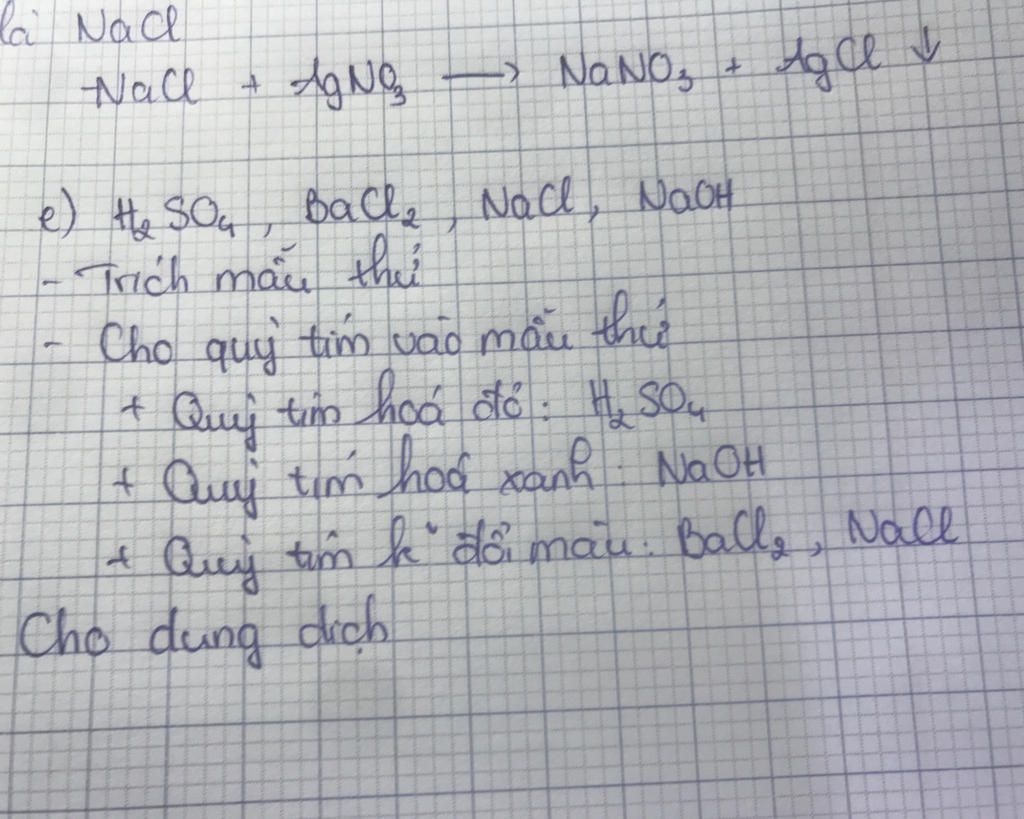 là NaCl
NaCl + AgNO₃ → NaNO₃ + AgCl ↓
e) H₂SO₄, BaCl₂, NaCl, NaOH
- Trích mẫu thử
- Cho quỳ tím vào mẫu thử
+ Quỳ tím hoá đỏ: H₂SO₄
+ Quỳ tím hoá xanh: NaOH
+ Quỳ tím k° đổi màu: BaCl₂, NaCl
Cho dung dịch